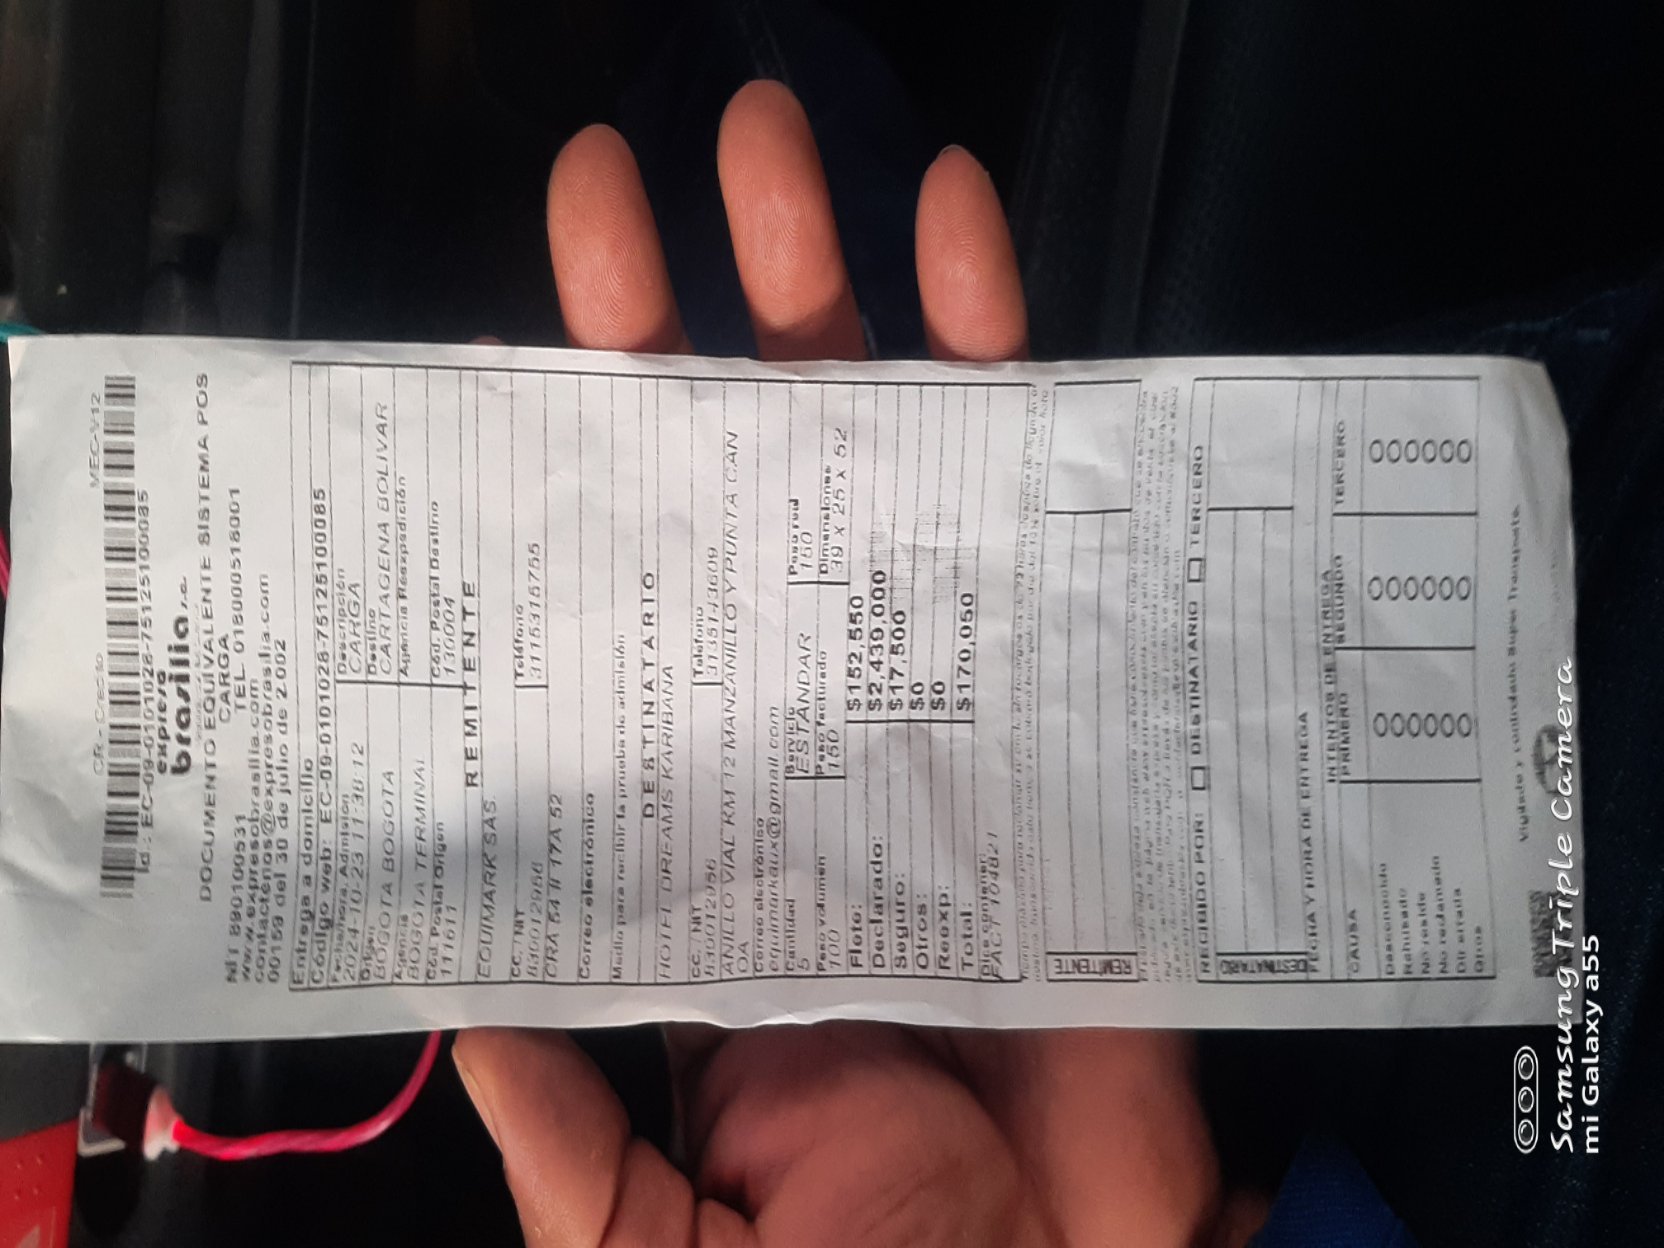 CR - Credito MEC-V12
Id.: EC-09-0101028-75125100085
expreso
brasilia s.a.
DOCUMENTO EQUIVALENTE SISTEMA POS
CARGA
NIT 890100531 TEL. 018000518001
www.expresobrasilia.com
contactenos@expresobrasilia.com
00159 del 30 de julio de 2.002
Entrega a domicilio
Código web: EC-09-0101028-75125100085
Fecha/hora. Admisión Descripción
2024-10-23 11:38:12 CARGA
Origen Destino
BOGOTA BOGOTA CARTAGENA BOLIVAR
Agencia Agencia Reexpedición
BOGOTA TERMINAL
Cód. Postal Origen Cód. Postal Destino
111611 130004
REMITENTE
EQUIMARK SAS.
CC. / NIT Teléfono
3115315755
CRA 54 # 17A 52
Correo electrónico
Medio para recibir la prueba de admisión
DESTINATARIO
HOTEL DREAMS KARIBANA
CC. / NIT Teléfono
ANILLO VIAL KM 12 MANZANILLO Y PUNTA CAN
OA
Correo electrónico
equimarkaux@gmail.com
Cantidad Servicio Peso real
5 ESTANDAR 150
Peso volumen Peso facturado Dimensiones
100 150 39 x 25 x 52
Flete: $152,550
Declarado: $2,439,000
Seguro: $17,500
Otros: $0
Reexp: $0
Total: $170,050
Dice contener
FACT 104821
REMITENTE
RECIBIDO POR: DESTINATARIO TERCERO
DESTINATARIO
FECHA Y HORA DE ENTREGA
INTENTOS DE ENTREGA
CAUSA PRIMERO SEGUNDO TERCERO
Desconocido
Rehusado
No reside
No reclamado
Dir errada
Otros
Vigilado y controlado Super Transporte.
Samsung Triple Camera
mi Galaxy a55